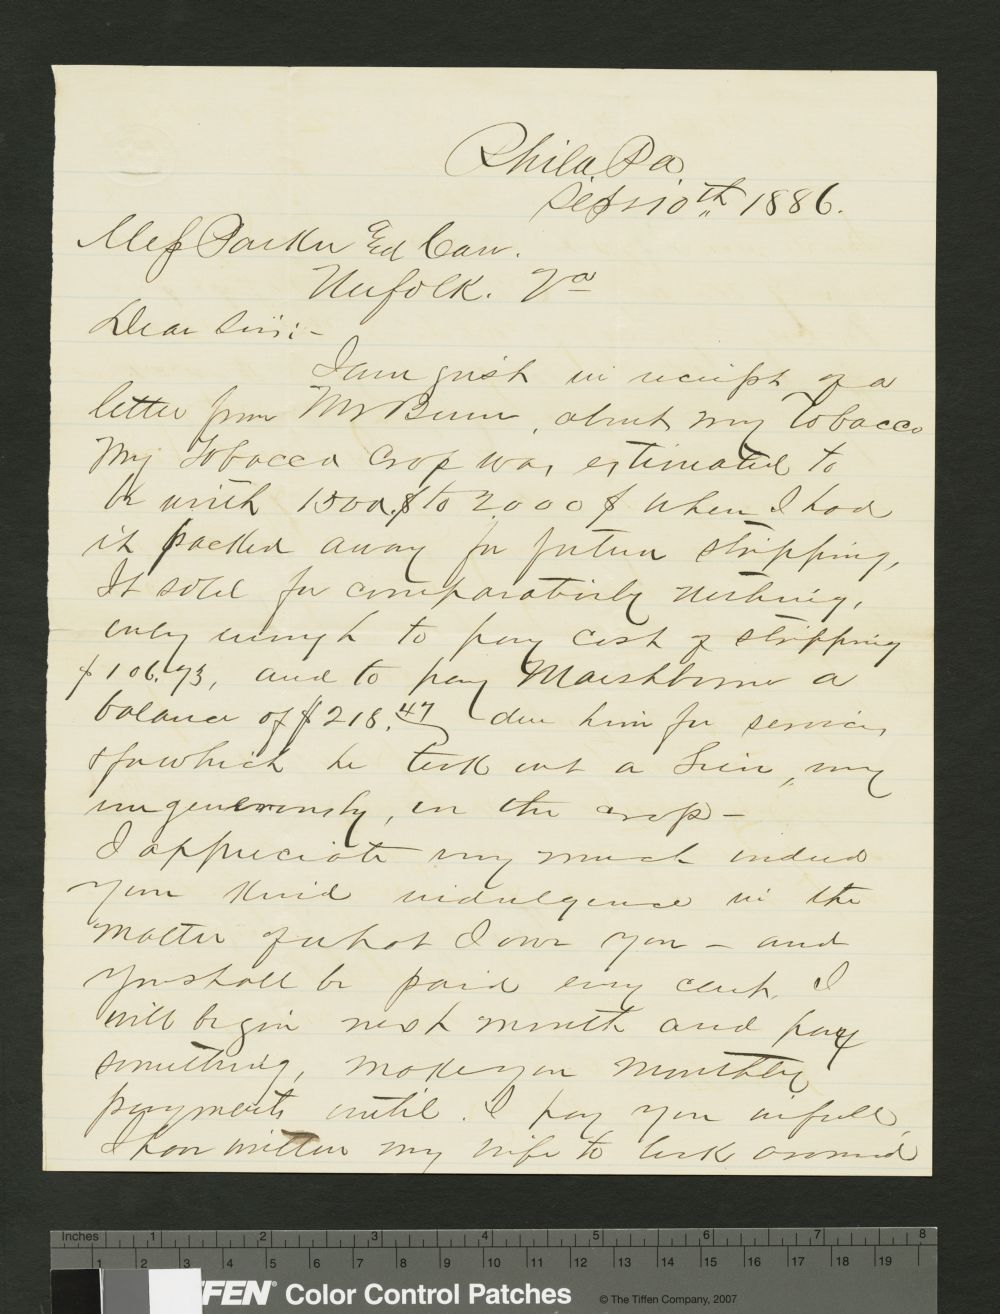 Phila Pa
Sept 10th 1886.
Mess Parker Ed Carr.
Norfolk. Va
Dear Sirs:-
I am just in receipt of a
letter from Mr Burr, about my Tobacco
My Tobacco Crop was estimated to
be worth 1500.$ to 2.000$ when I had
it packed away for future stripping,
It sold for comparatively nothing,
only enough to pay cost of stripping
$106.93, and to pay Marshborne a
balance of $218.47 due him for services
& for which he took out a Lien, very
ungenerously, on the crop -
I appreciate very much indeed
your kind indulgence in the
matter of what I owe you - and
you shall be paid every cent. I
will begin next month and pay
something, make you monthly
payments until I pay you in full,
I have written my wife to look around
Inches 1 2 3 4 5 6 7 8
1 2 3 4 5 6 7 8 9 10 11 12 13 14 15 16 17 18 19
FFEN® Color Control Patches © The Tiffen Company, 2007